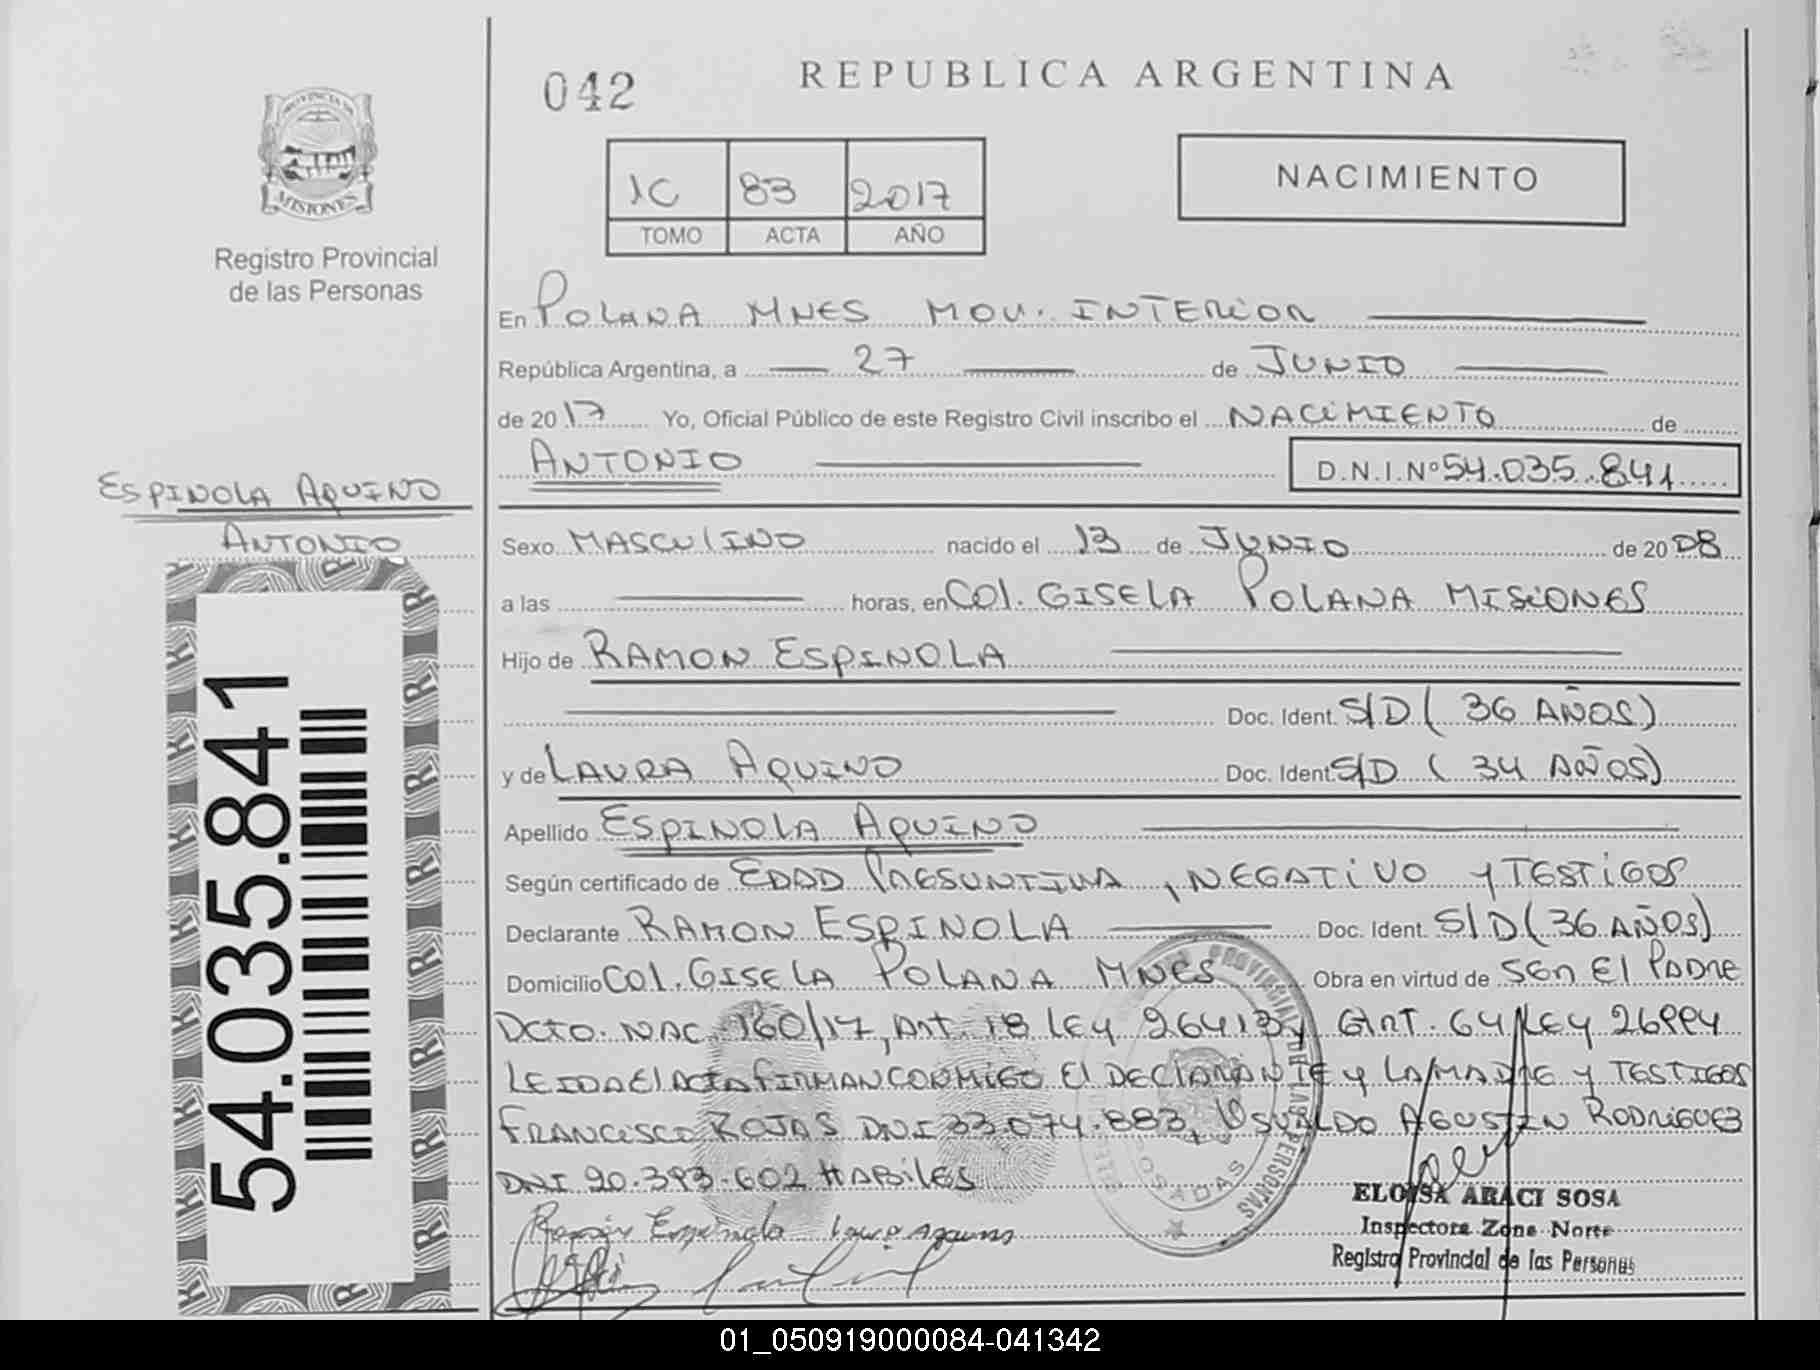 042
REPUBLICA ARGENTINA
PROVINCIA DE
MISIONES
Registro Provincial
de las Personas
1C 83 2017
TOMO ACTA AÑO
NACIMIENTO
En POLANA MNES MOV. INTERIOR
República Argentina, a 27 de JUNIO
de 2017 Yo, Oficial Público de este Registro Civil inscribo el NACIMIENTO de
ANTONIO
D.N.I.Nº 54.035.841
ESPINOLA AQUINO
ANTONIO
54.035.841
Sexo MASCULINO nacido el 13 de JUNIO de 2008
a las horas, en COL. GISELA POLANA MISIONES
Hijo de RAMON ESPINOLA
Doc. Ident. S/D ( 36 AÑOS)
y de LAURA AQUINO Doc. Ident. S/D ( 34 AÑOS)
Apellido ESPINOLA AQUINO
Según certificado de EDAD PRESUNTIVA, NEGATIVO Y TESTIGOS
Declarante RAMON ESPINOLA Doc. Ident. S/D (36 AÑOS)
Domicilio COL. GISELA POLANA MNES Obra en virtud de SER EL PADRE
DCTO. NAC. 160/17, Art. 18 LEY 26413 y ART. 64 LEY 26994
LEIDA EL ACTA FIRMAN CONMIGO El DECLARANTE Y LA MADRE Y TESTIGOS
FRANCISCO ROJAS DNI 33.074.883, OSVALDO AGUSTIN RODRIGUEZ
DNI 20.393.602 HABILES
Ramón Espinola Laura Aquino
POSADAS
ELOISA ARACI SOSA
Inspectora Zona Norte
Registro Provincial de las Personas
01_050919000084-041342